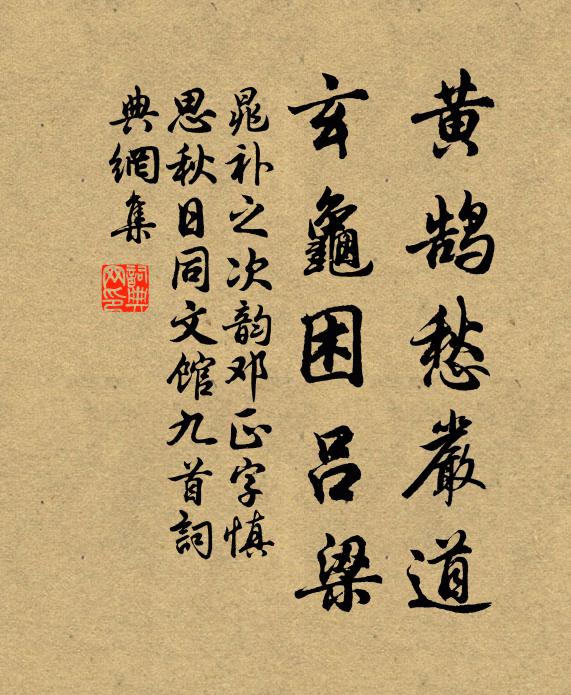 黄鹄愁嚴道
玄龜困吕梁
晁补之次韵邓正字慎
思秋日同文馆九首詞
典網集
詞典网印